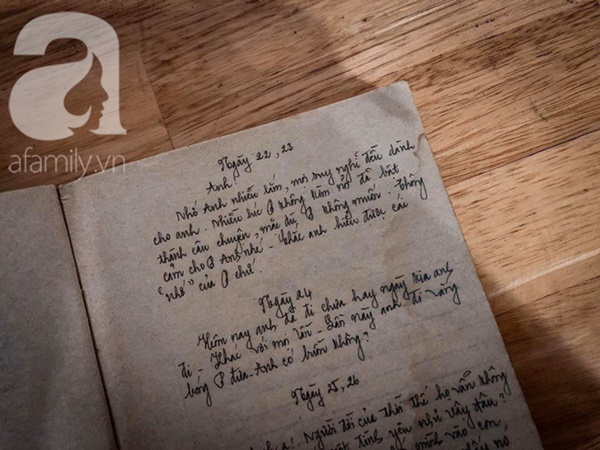 a
afamily.vn
Ngày 22, 23
Anh!
Nhớ Anh nhiều lắm, mọi suy nghĩ đều dành
cho anh. Nhiều lúc P không kềm nỗi đã bật
thành câu chuyện, mặc dù P không muốn. Thông
cảm cho P Anh nhé - Chắc anh hiểu được cái
"nhớ" của P chứ.
Ngày 24
Hôm nay anh đã đi chưa hay ngày mai anh
đi - Khác với mọi lần - Lần này anh đi vắng
bóng P đưa - Anh có buồn không?
Ngày 25, 26
Người tôi của thời thế họ vẫn không
tình yêu như vậy đâu?
mình vào em,